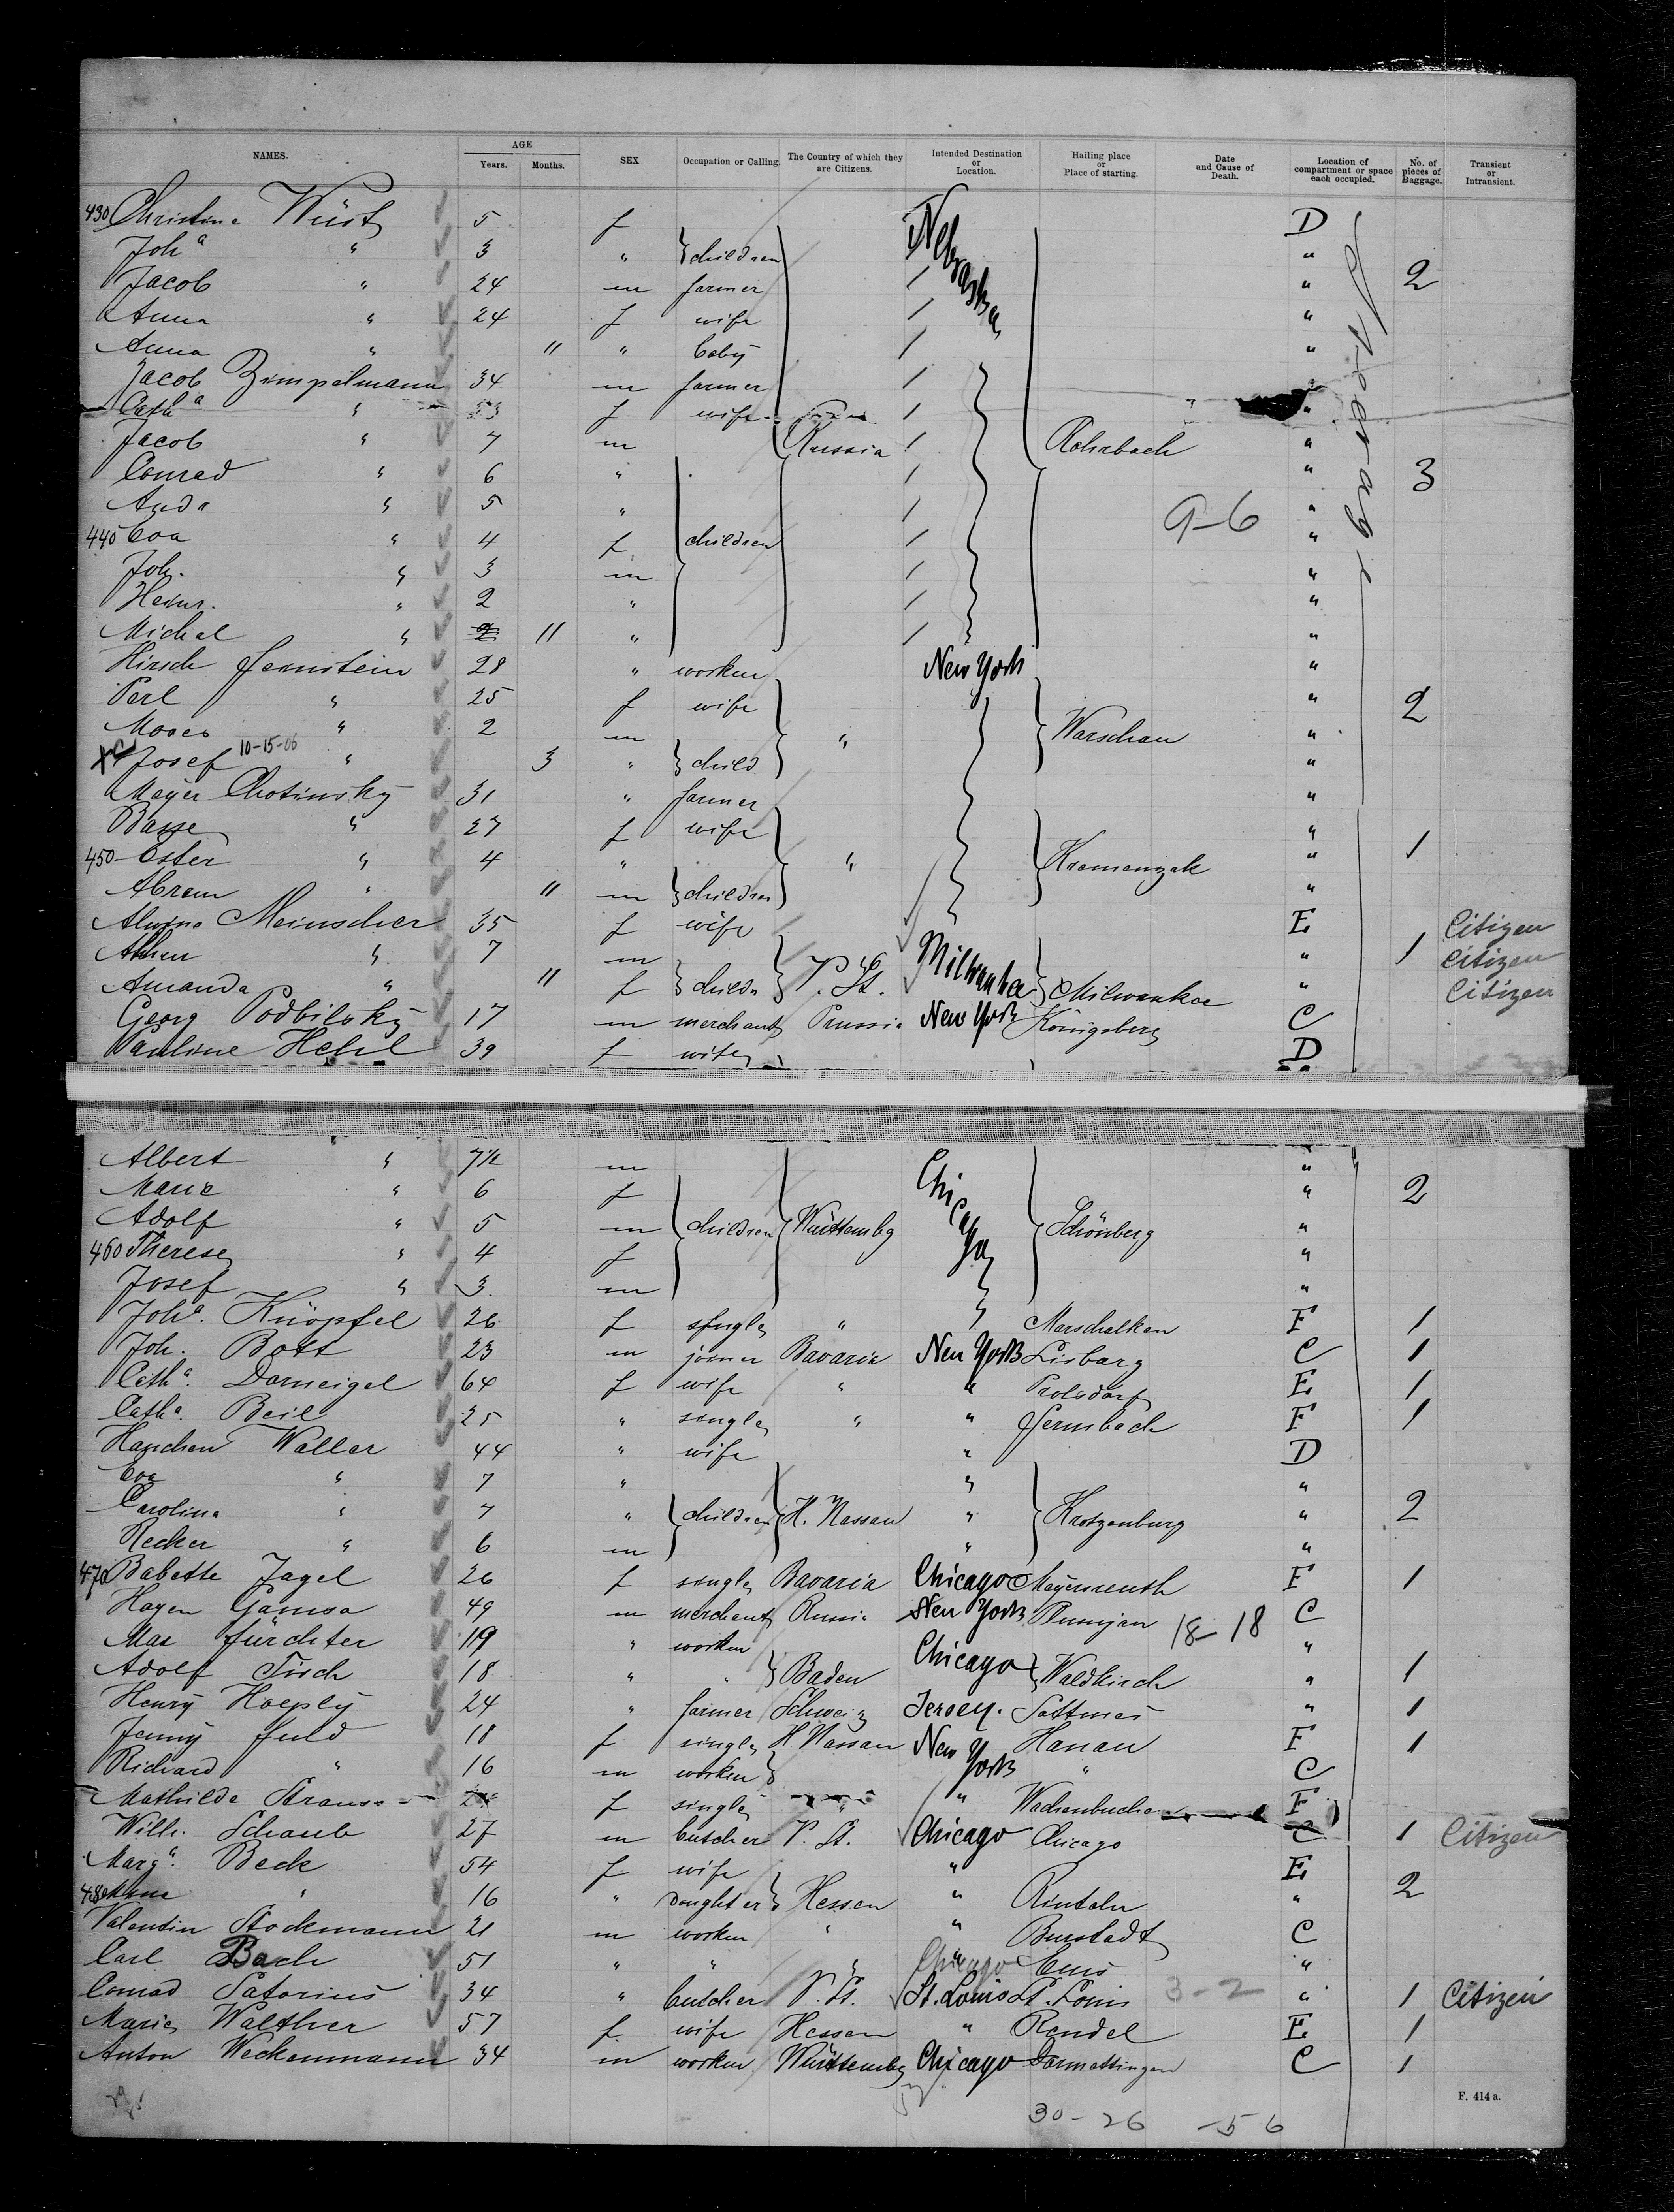 NAMES. AGE Years. Months. SEX Occupation or Calling. The Country of which they are Citizens. Intended Destination or Location. Hailing place or Place of starting. Date and Cause of Death. Location of compartment or space each occupied. No. of pieces of Baggage. Transient or Intransient.
430 Christina Wüst 5 f Nebraska D Steerage
Joh.a " 3 " } children "
Jacob " 24 m farmer / " 2
Anna " 24 f wife / "
Anna " 11 " baby / "
Jacob Zimpelmann 34 m farmer /
Cath.a " 33 f wife / "
Jacob " 7 m Russia / Rohrbach "
Conrad " 6 " / " 3
" 5 " / 9-6 "
440 Eva " 4 f children / "
Joh. " 3 m / "
Heinr. " 2 " / "
Michel " 2 11 " / "
Hirsch 28 " worker New York "
Perl " 25 f wife " 2
Moses " 2 m " Warschau "
X Josef 10-15-06 " 3 " } child "
Meyer Chotinsky 31 " farmer "
Basse " 27 f wife "
450 Ester " 4 " " Kremenzak " 1
Abram " 11 m } children "
Alwine Meinscher 35 f wife E Citizen
" 7 m " 1 Citizen
Amanda " 11 f } childn } V. St. Milwaukee } Milwaukee " Citizen
Georg Podbilsky 17 m merchant Prussia New York Königsberg C
Pauline Hehl 39 f wife D
Albert " 7½ m "
Marie " 6 f Chicago " 2
Adolf " 5 m children Württembg Schönberg "
460 Therese " 4 f "
Josef " 3 m "
Joh.a Knöpfel 26 f single " " F 1
Joh. Bott 23 m joiner Bavaria New York Lisberg C 1
Cath.a Dorneigel 64 f wife " " Prolsdorf E 1
Cath.a Beil 25 " single " " F 1
Hanchen Waller 44 " wife " D
Eva " 7 " " "
Carolina " 7 " children H. Nassau " Krotzenburg " 2
Recker " 6 m " "
470 Babette Jagel 26 f single Bavaria Chicago F 1
Hagen 49 m merchant Russia New York 18-18 C
Max Fürchter 19 " worker "
Adolf Tisch 18 " " } Baden Chicago } Waldkirch " 1
Henry Hoeply 24 " farmer Schweiz Jersey. " 1
Jenny Fuld 18 f single H. Nassau New York Hanau F 1
Richard " 16 m worker } " C
Mathilde Strauss f single " " Wachenbuchen F
Willi. Schaub 27 m butcher V. St. Chicago Chicago C 1 Citizen
Marg.a Beck 54 f wife " E
480 Anna " 16 " daughter } Hessen " Rinteln " 2
Valentin Stockmann 21 m worker " " Burstadt C
Carl Bach 51 " " " Chicago Ems "
Conrad Satorius 34 " butcher V. St. St. Louis St. Louis 3-2 " 1 Citizen
Marie Walther 57 f wife Hessen " Rendel E 1
Anton Weckenmann 34 m worker Württembg Chicago Dormettingen C 1
F. 414 a.
30-26 -56